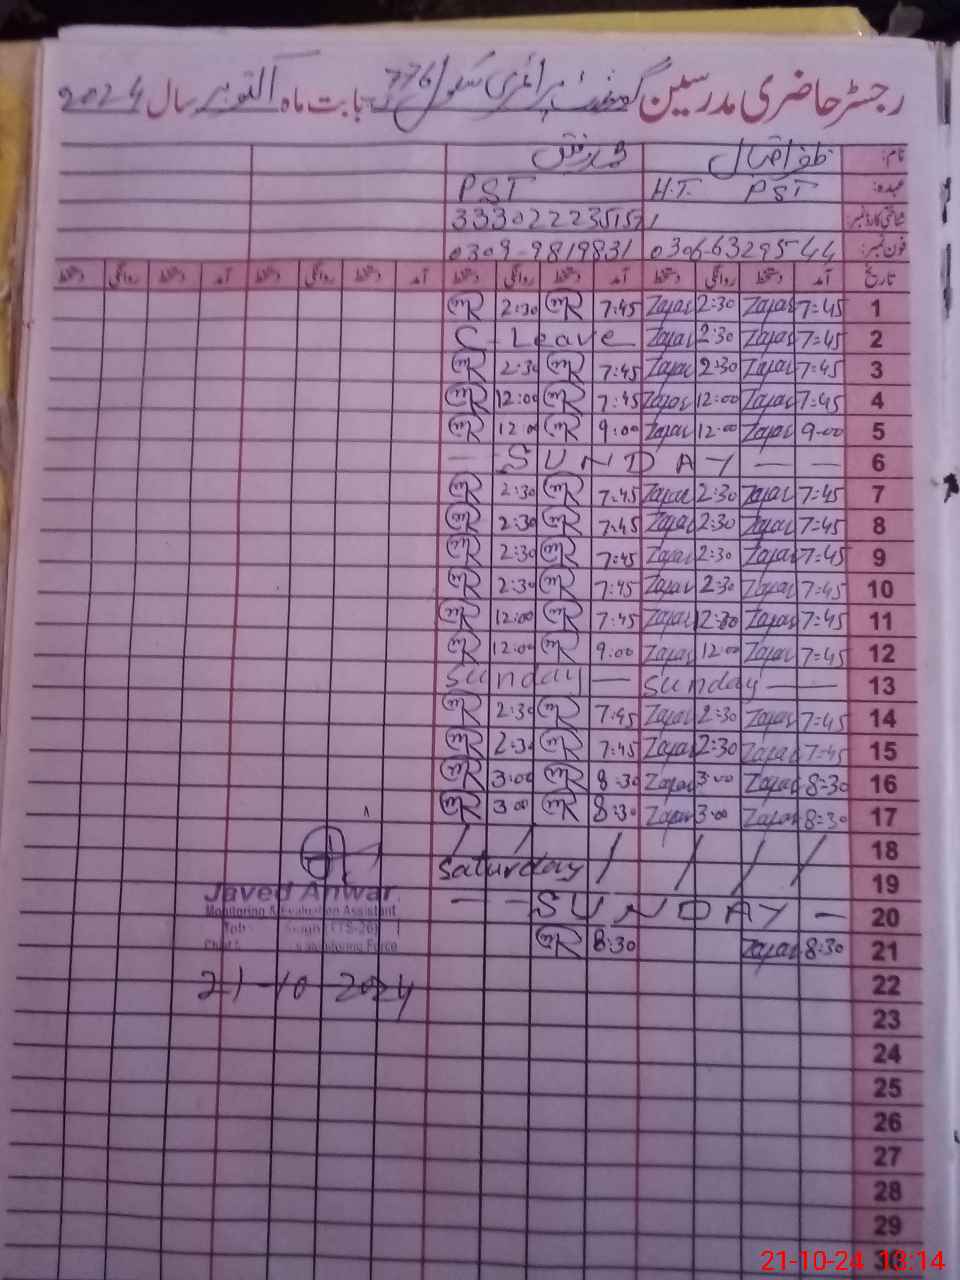 رجسٹر حاضری مدرسین گورنمنٹ پرائمری سکول 776 بابت ماہ اکتوبر سال 2024
نام: ظفر اقبال
عہدہ: H.T. PST PST
شناختی کارڈ نمبر:
فون نمبر: 0306-6329544 0309-9819831
تاریخ آمد دستخط روانگی دستخط آمد دستخط روانگی دستخط آمد دستخط روانگی دستخط آمد دستخط روانگی دستخط
1 7=45 Zafar 2:30 Zafar 7:45 MR 2:30 MR
2 7=45 Zafar 2:30 Zafar C-Leave
3 7=45 Zafar 2:30 Zafar 7:45 MR 2:30 MR
4 7=45 Zafar 12:00 Zafar 7:45 MR 12:00 MR
5 9-00 Zafar 12:00 Zafar 9:00 MR 12:00 MR
6 — — SUNDAY — —
7 7=45 Zafar 2:30 Zafar 7:45 MR 2:30 MR
8 7=45 Zafar 2:30 Zafar 7:45 MR 2:30 MR
9 7=45 Zafar 2:30 Zafar 7:45 MR 2:30 MR
10 7=45 Zafar 2:30 Zafar 7:45 MR 2:30 MR
11 7=45 Zafar Zafar 7:45 MR 12:00 MR
12 7=45 Zafar 12:00 Zafar 9:00 MR 12:00 MR
13 Sunday — Sunday — —
14 7=45 Zafar 2:30 Zafar 7:45 MR 2:30 MR
15 7=45 Zafar 2:30 Zafar 7:45 MR 2:30 MR
16 8=30 Zafar 3:00 Zafar 8:30 MR 3:00 MR
17 8=30 Zafar 3:00 Zafar 8:30 MR 3:00 MR
18
19 Saturday
20 — — SUNDAY —
21 8:30 Zafar 8:30 MR
22
23
24
25
26
27
28
29
30
Javed Anwar
Monitoring & Evaluation Assistant
Singh (TTS-26)
Monitoring Force
21-10-2024
21-10-24 13:14